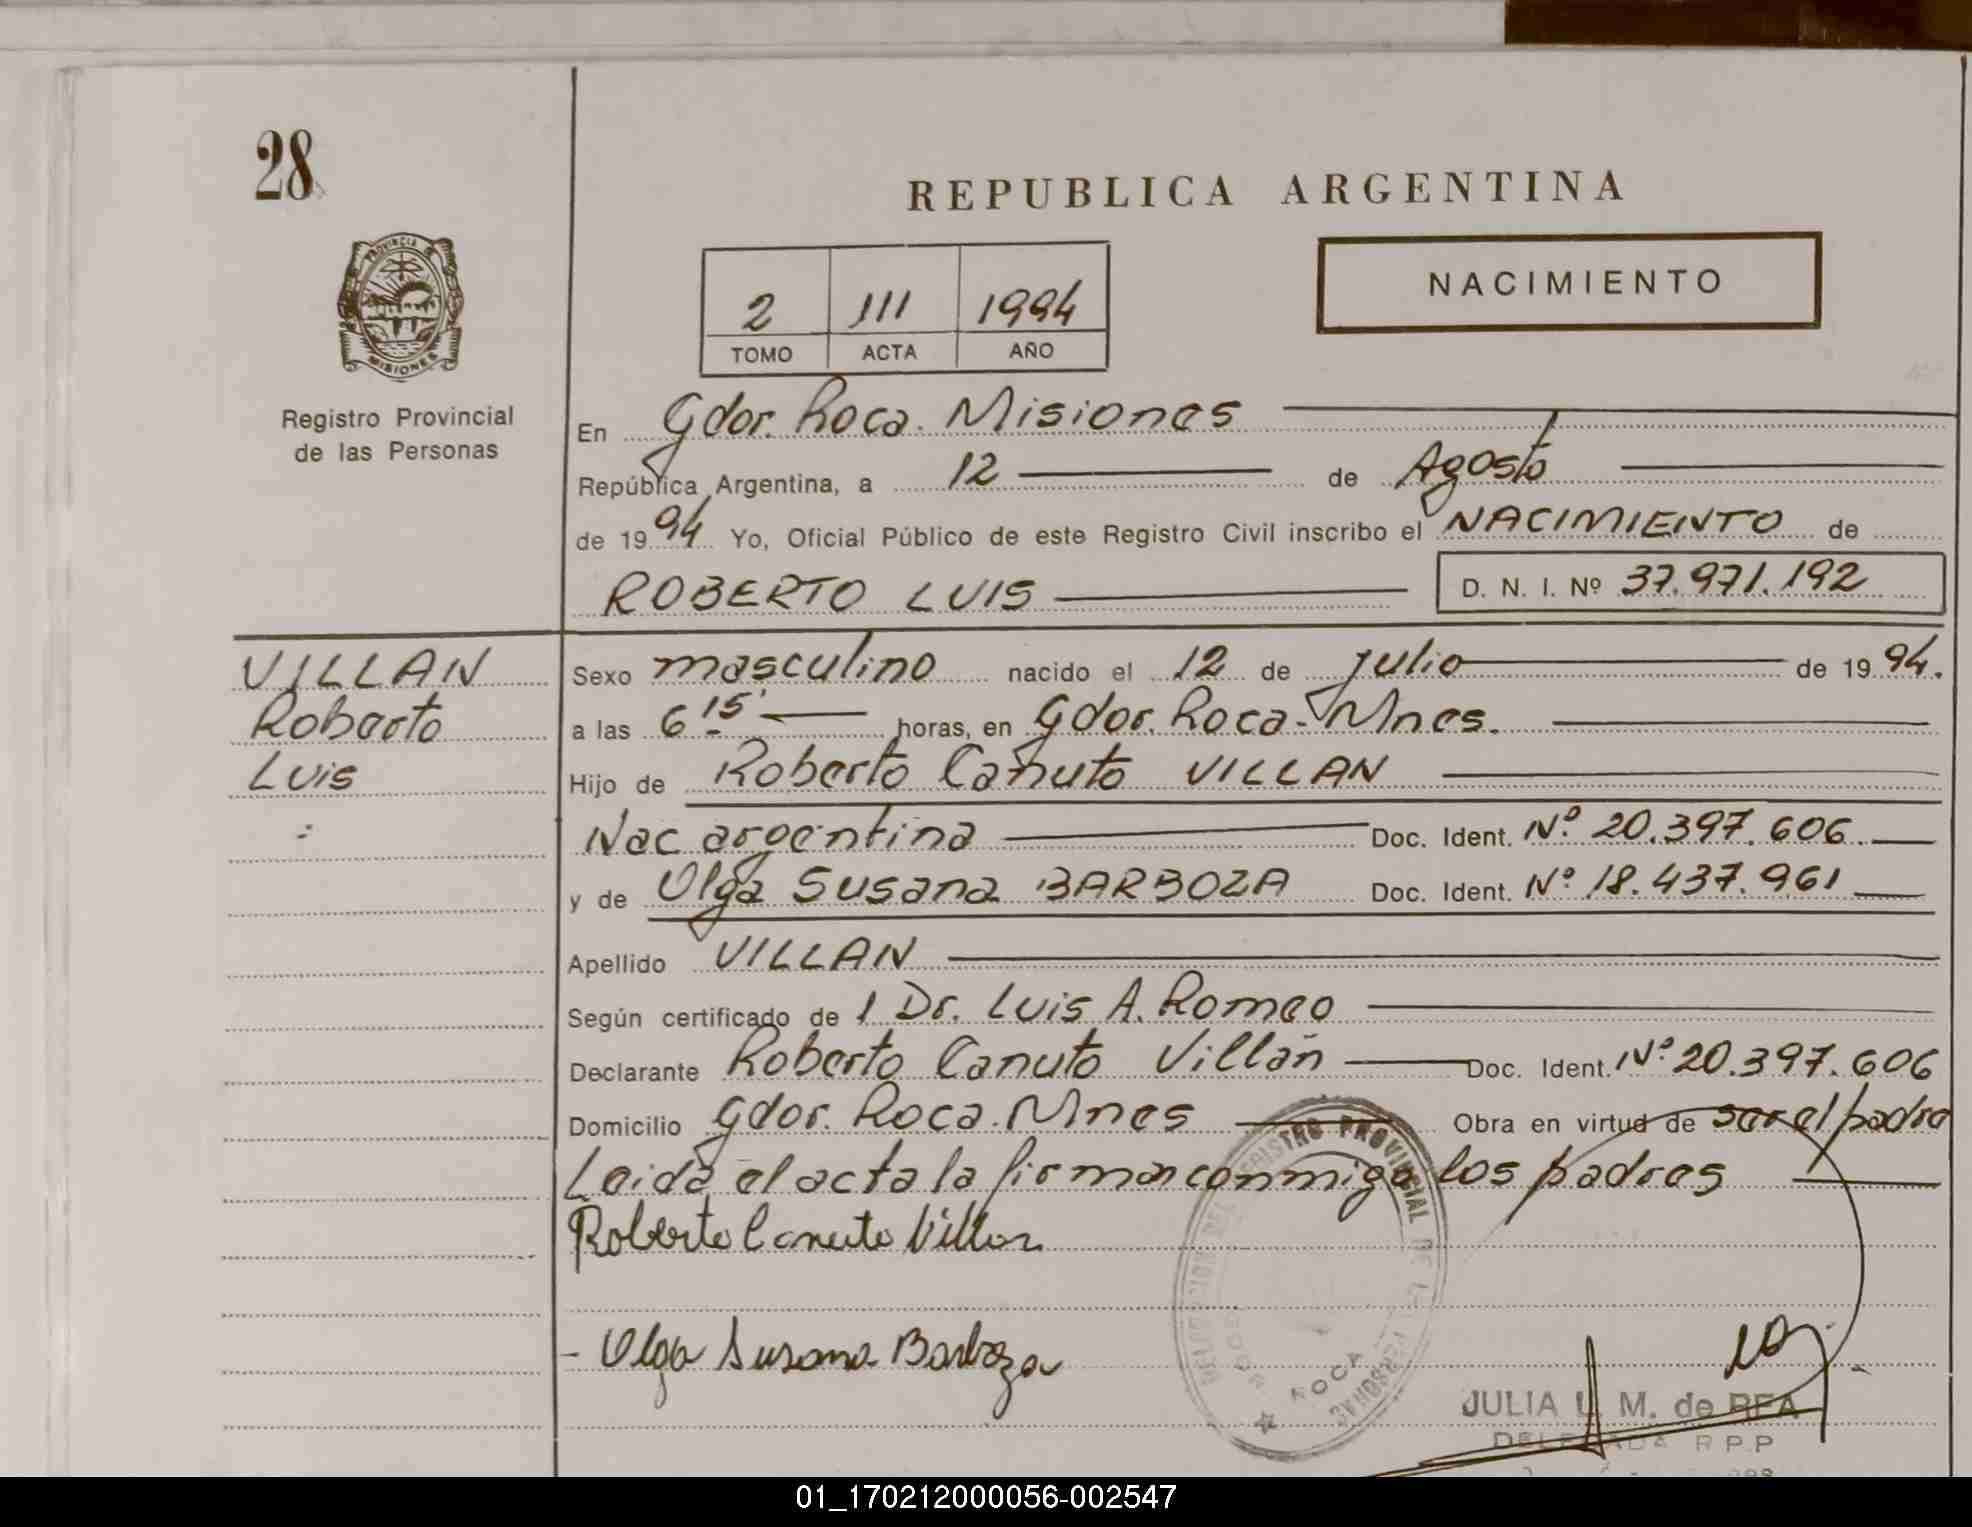 28
REPUBLICA ARGENTINA
PROVINCIA DE
MISIONES
Registro Provincial
de las Personas
NACIMIENTO
2 111 1994
TOMO ACTA AÑO
En Gdor. Roca. Misiones
República Argentina, a 12 de Agosto
de 1994 Yo, Oficial Público de este Registro Civil inscribo el NACIMIENTO de
ROBERTO LUIS D. N. I. Nº 37.971.192
VILLAN
Roberto
Luis
Sexo masculino nacido el 12 de julio de 1994.
a las 6 15' horas, en Gdor. Roca-Mnes.
Hijo de Roberto Canuto VILLAN
Nac argentina Doc. Ident. Nº 20.397.606
y de Olga Susana BARBOZA Doc. Ident. Nº 18.437.961
Apellido VILLAN
Según certificado de 1 Dr. Luis A. Romeo
Declarante Roberto Canuto Villán Doc. Ident. Nº 20.397.606
Domicilio Gdor. Roca. Mnes Obra en virtud de ser el padre
Leida el acta la firman conmigo los padres
Roberto Canuto Villan
- Olga Susana Barboza
DELEGACION DEL REGISTRO PROVINCIAL DE LAS PERSONAS
GDOR ROCA
JULIA L. M. de REA
DELEGADA R.P.P
01_170212000056-002547